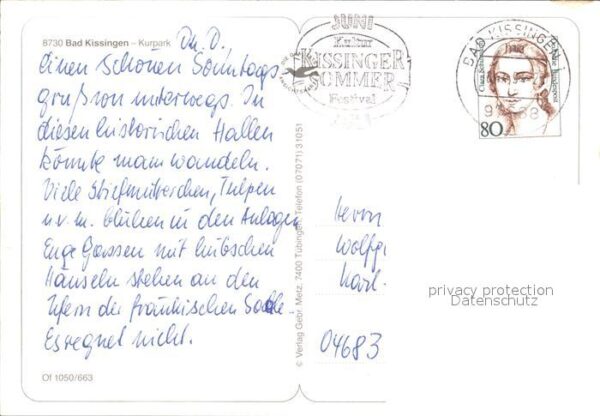 8730 Bad Kissingen – Kurpark
einen schönen Sonntags-
gruß von unterwegs. In
diesen historischen Hallen
könnte man wandeln.
Viele Stiefmütterchen, Tulpen
u.v.m. blühen in den Anlagen
Enge Gassen mit hübschen
Häuseln stehen an den
Ufern der fränkischen Saale.
Es regnet nicht.
Of 1050/663
© Verlag Gebr. Metz, 7400 Tübingen, Telefon (07071) 31051
JUNI
Kultur
KISSINGER
SOMMER
Festival
BAD KISSINGEN 1
80
Herrn
Wolfg
Karl-
04683
privacy protection
Datenschutz